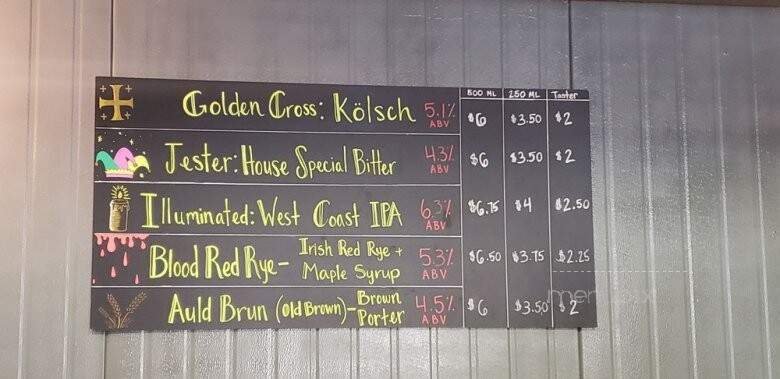 500 ML 250 ML Taster
Golden Cross: Kölsch 5.1% ABV $6 $3.50 $2
Jester: House Special Bitter 4.3% ABV $6 $3.50 $2
Illuminated: West Coast IPA 6.3% ABV $6.75 $4 $2.50
Blood Red Rye- Irish Red Rye + Maple Syrup 5.3% ABV $6.50 $3.75 $2.25
Auld Brun (Old Brown)- Brown Porter 4.5% ABV $6 $3.50 $2